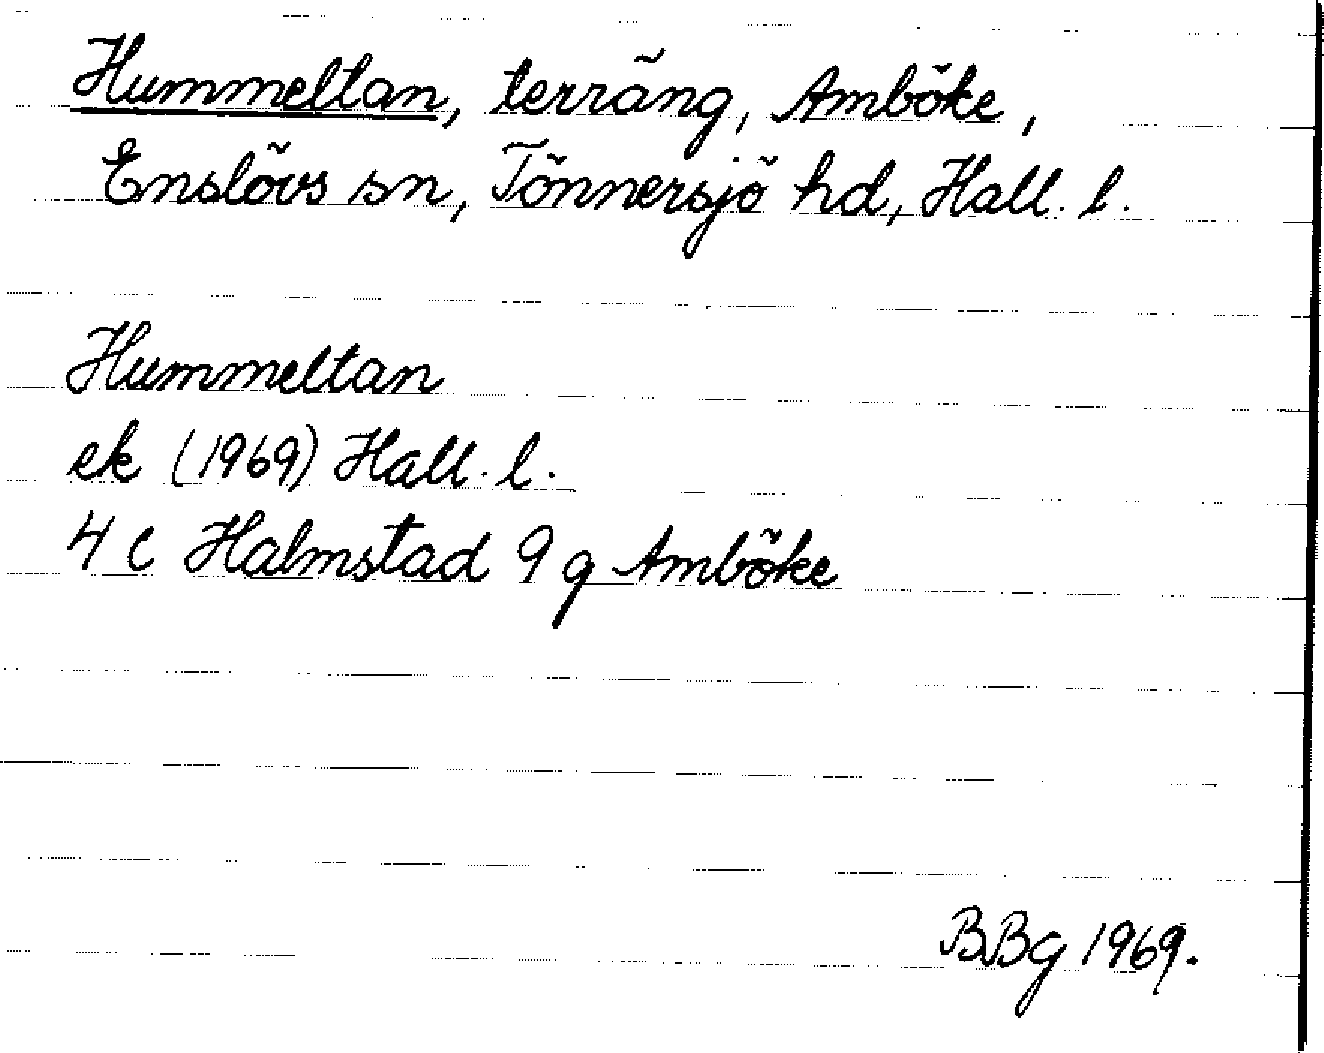 Hummeltan, terräng, Amböke,
Enslövs sn, Tönnersjö hd, Hall. l.
Hummeltan
ek (1969) Hall. l.
4 C Halmstad 9 g Amböke
BBg 1969.